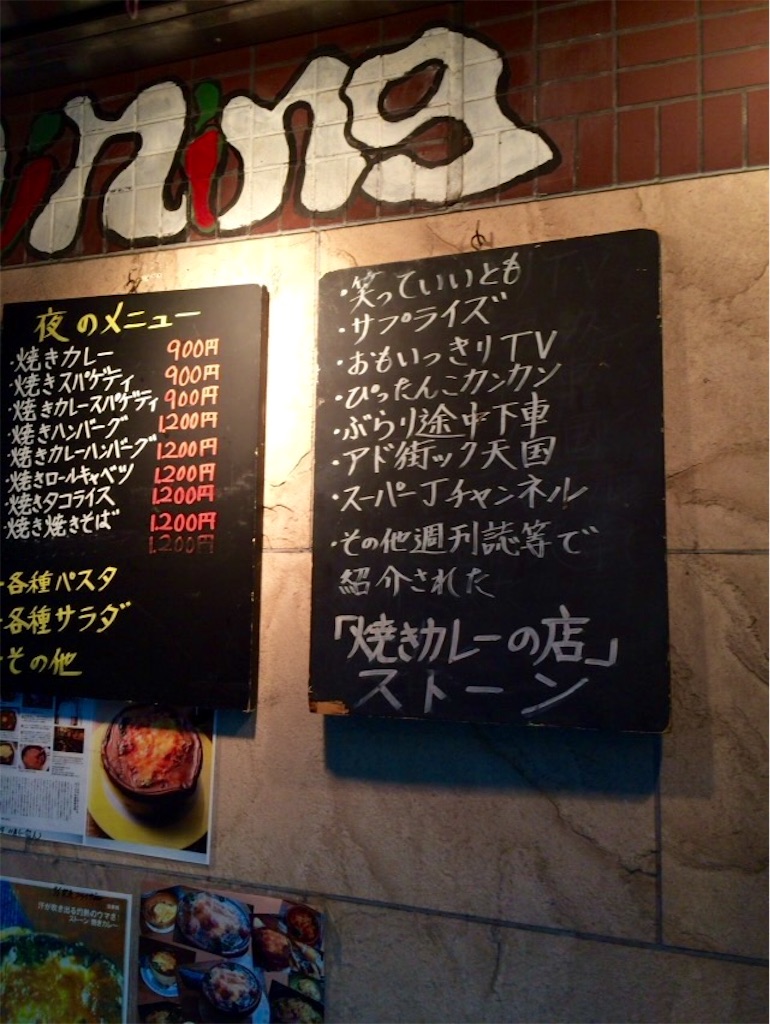 ining
夜のメニュー
・焼きカレー 900円
・焼きスパゲティ 900円
・焼きカレースパゲティ 900円
・焼きハンバーグ 1200円
・焼きカレーハンバーグ 1,200円
・焼きロールキャベツ 1,200円
・焼きタコライス 1,200円
・焼き焼きそば 1,200円
1,200円
・各種パスタ
・各種サラダ
・その他
・笑っていいとも
・サプライズ
・おもいっきりTV
・ぴったんこカンカン
・ぶらり途中下車
・アド街ック天国
・スーパーJチャンネル
・その他週刊誌等で
紹介された
「焼きカレーの店」
ストーン
汗が吹き出る灼熱のウマさ!
ストーン 焼きカレー